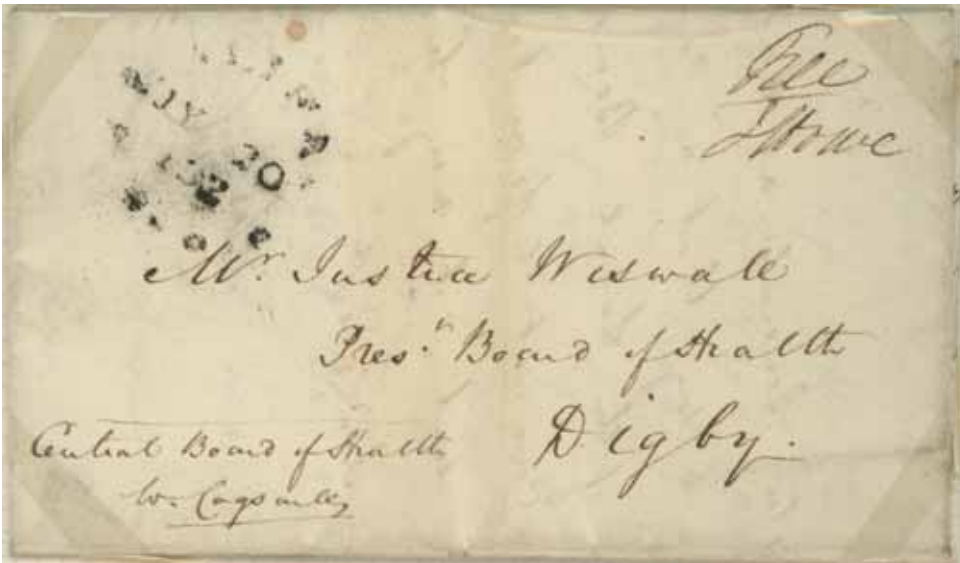 Free
J Howe
20
Mr. Justice Wiswall
Pres.t Board of Health
Digby.
Central Board of Health